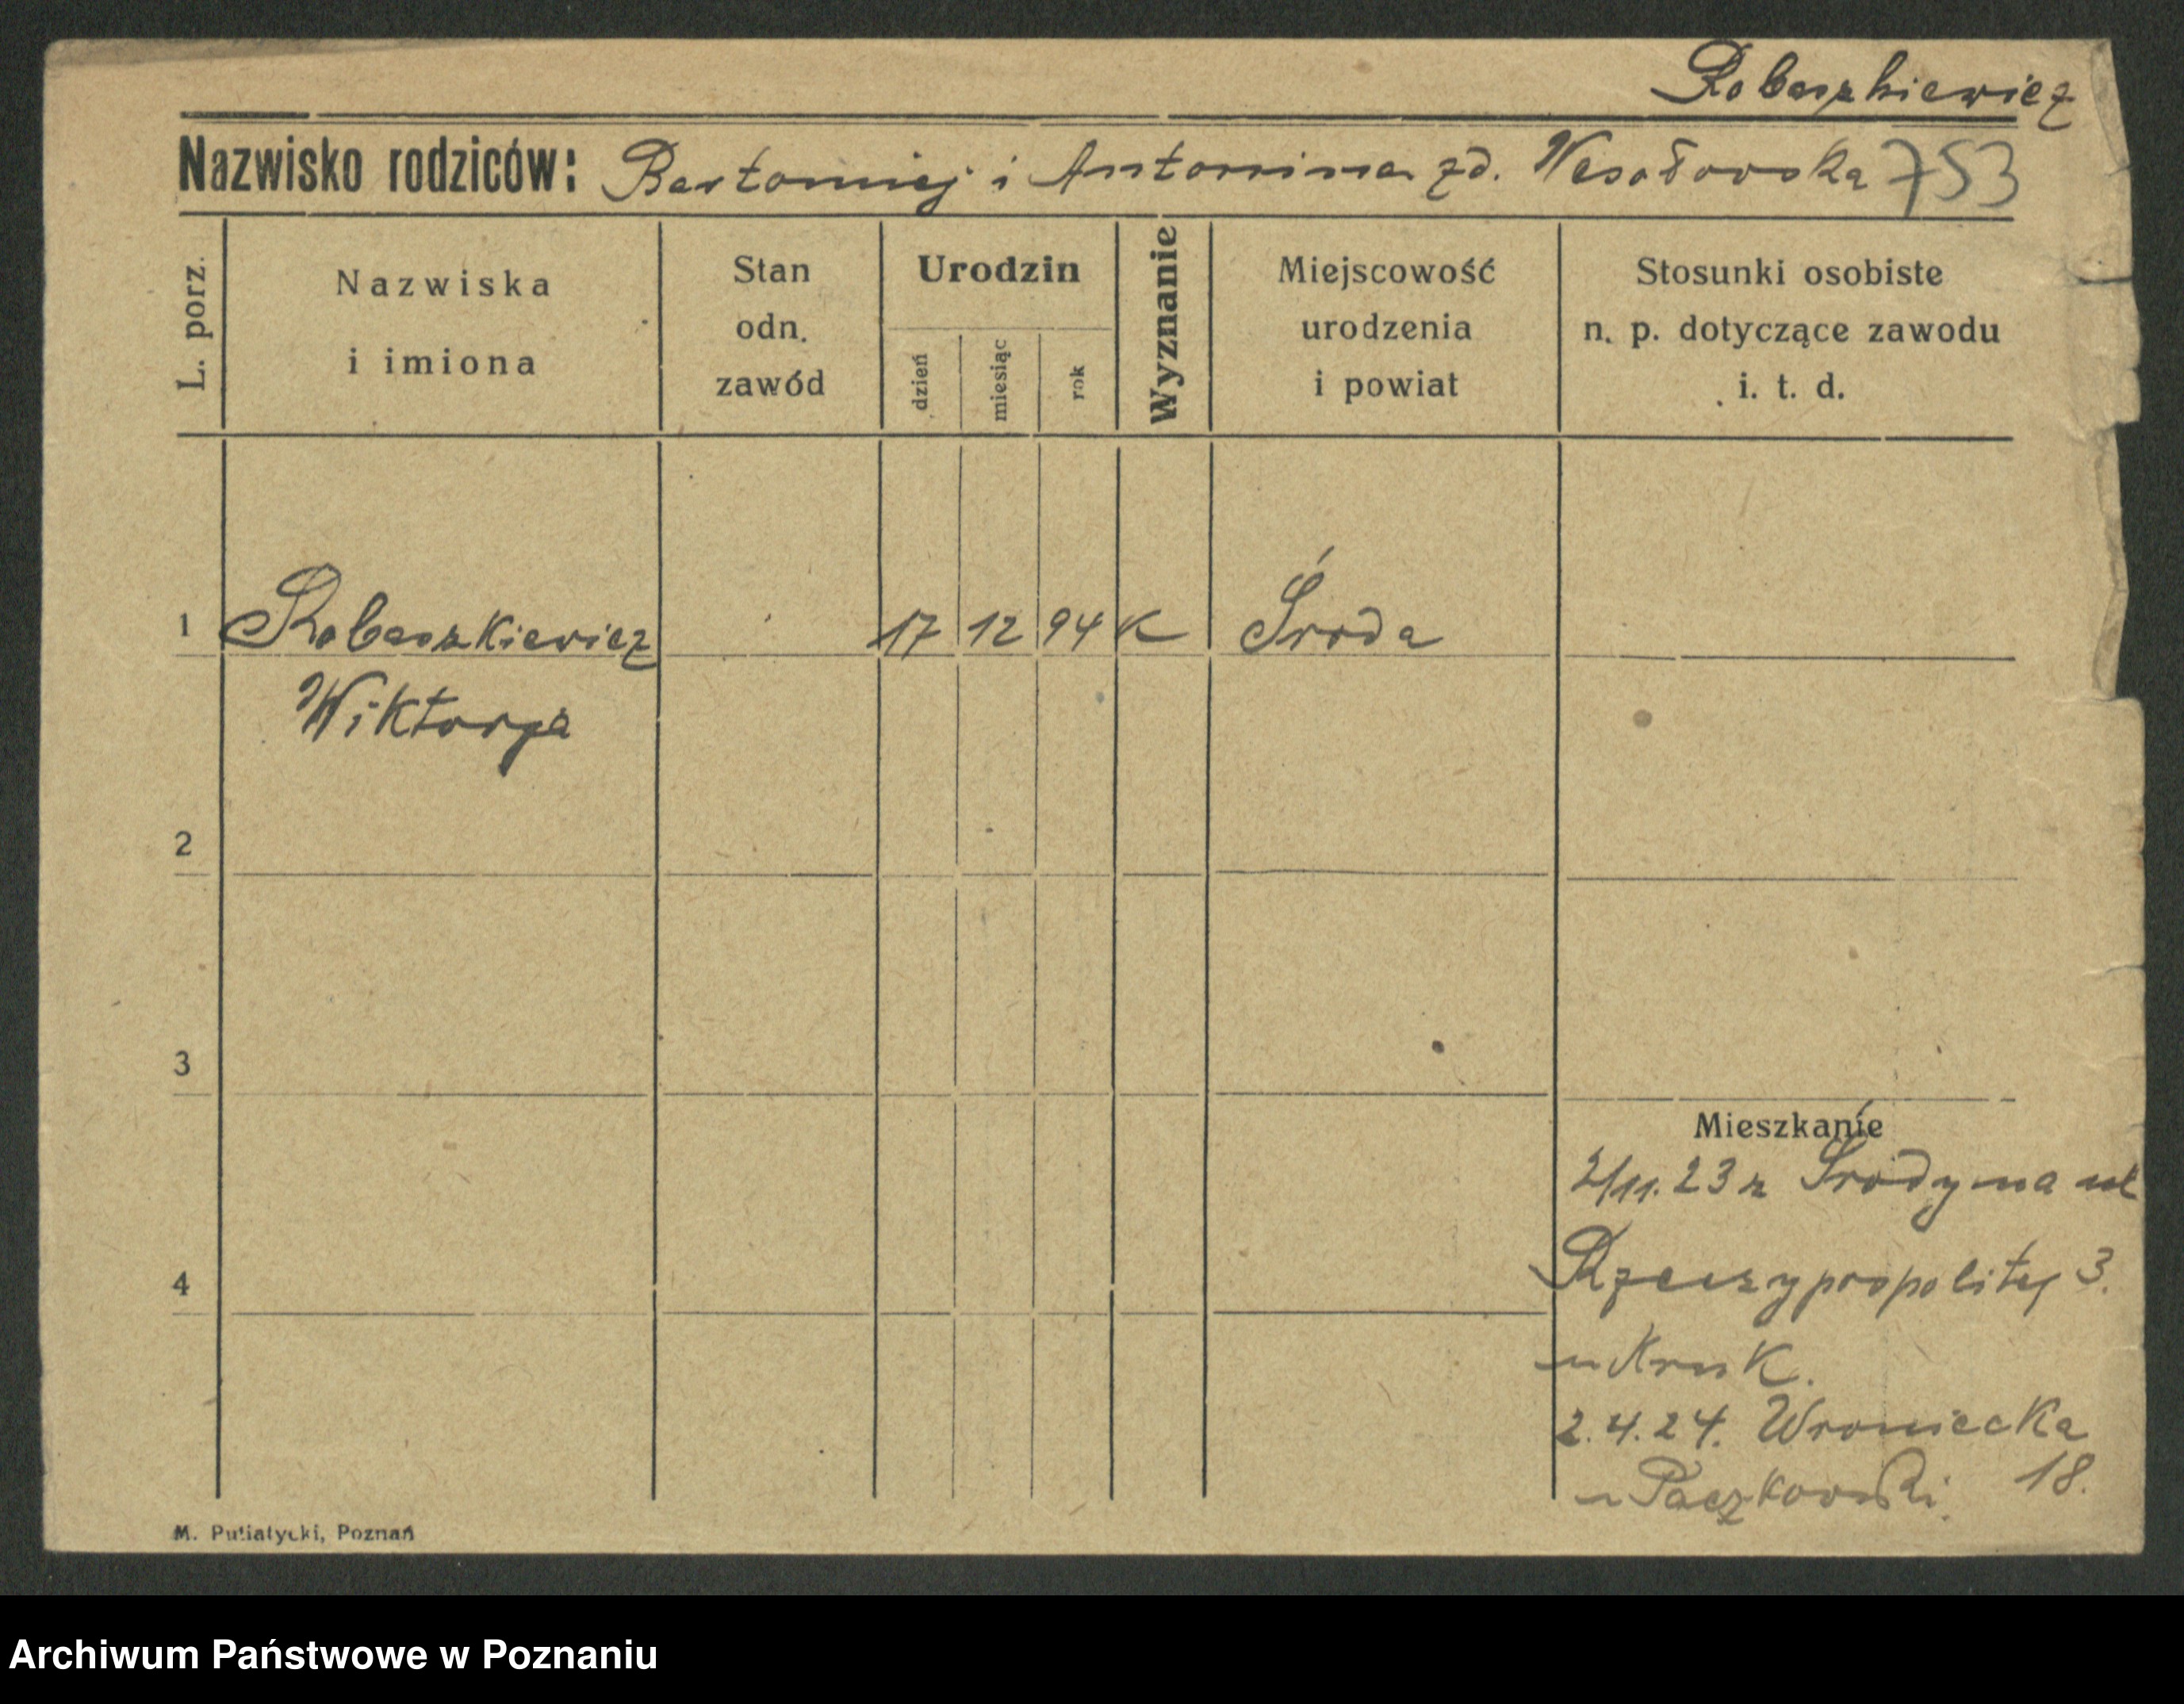 Robaszkiewicz
Nazwisko rodziców: Bartomiej i Antonina zd. Wesołowska 753
L. porz.
Nazwiska
i imiona
Stan
odn.
zawód
Urodzin
dzień
miesiąc
rok
Wyznanie
Miejscowość
urodzenia
i powiat
Stosunki osobiste
n. p. dotyczące zawodu
i. t. d.
1 Robaszkiewicz 17 12 94 K Środa
Wiktorja
2
3
Mieszkanie
2/11. 23 z Środy na ul
4
Rzeczypospolitej 3.
u Kruk.
2.4.24. Wroniecka
18.
u Paczkowski.
M. Putiatycki, Poznań
Archiwum Państwowe w Poznaniu